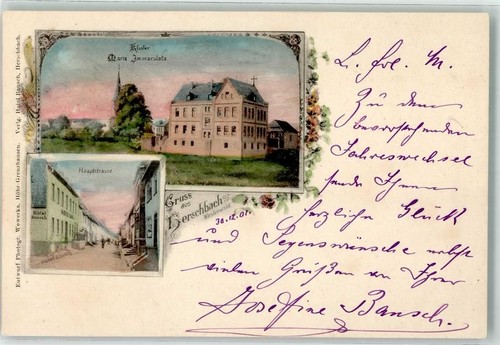 Entwurf Photogr. Wewerka, Höhr-Grenzhausen. Verlg. Hôtel Bausch, Herschbach.
Kloster
Maria Immaculata
Hauptstrasse
Hôtel
Bausch
Gruss
aus
Herschbach
Westerwald
30.12.01.
L. Frl. M.
Zu dem
bevorstehenden
Jahreswechsel
sende Ihnen
herzliche Glück
und Segenswünsche nebst
vielen Grüßen an Ihnen
Josefine Bausch.